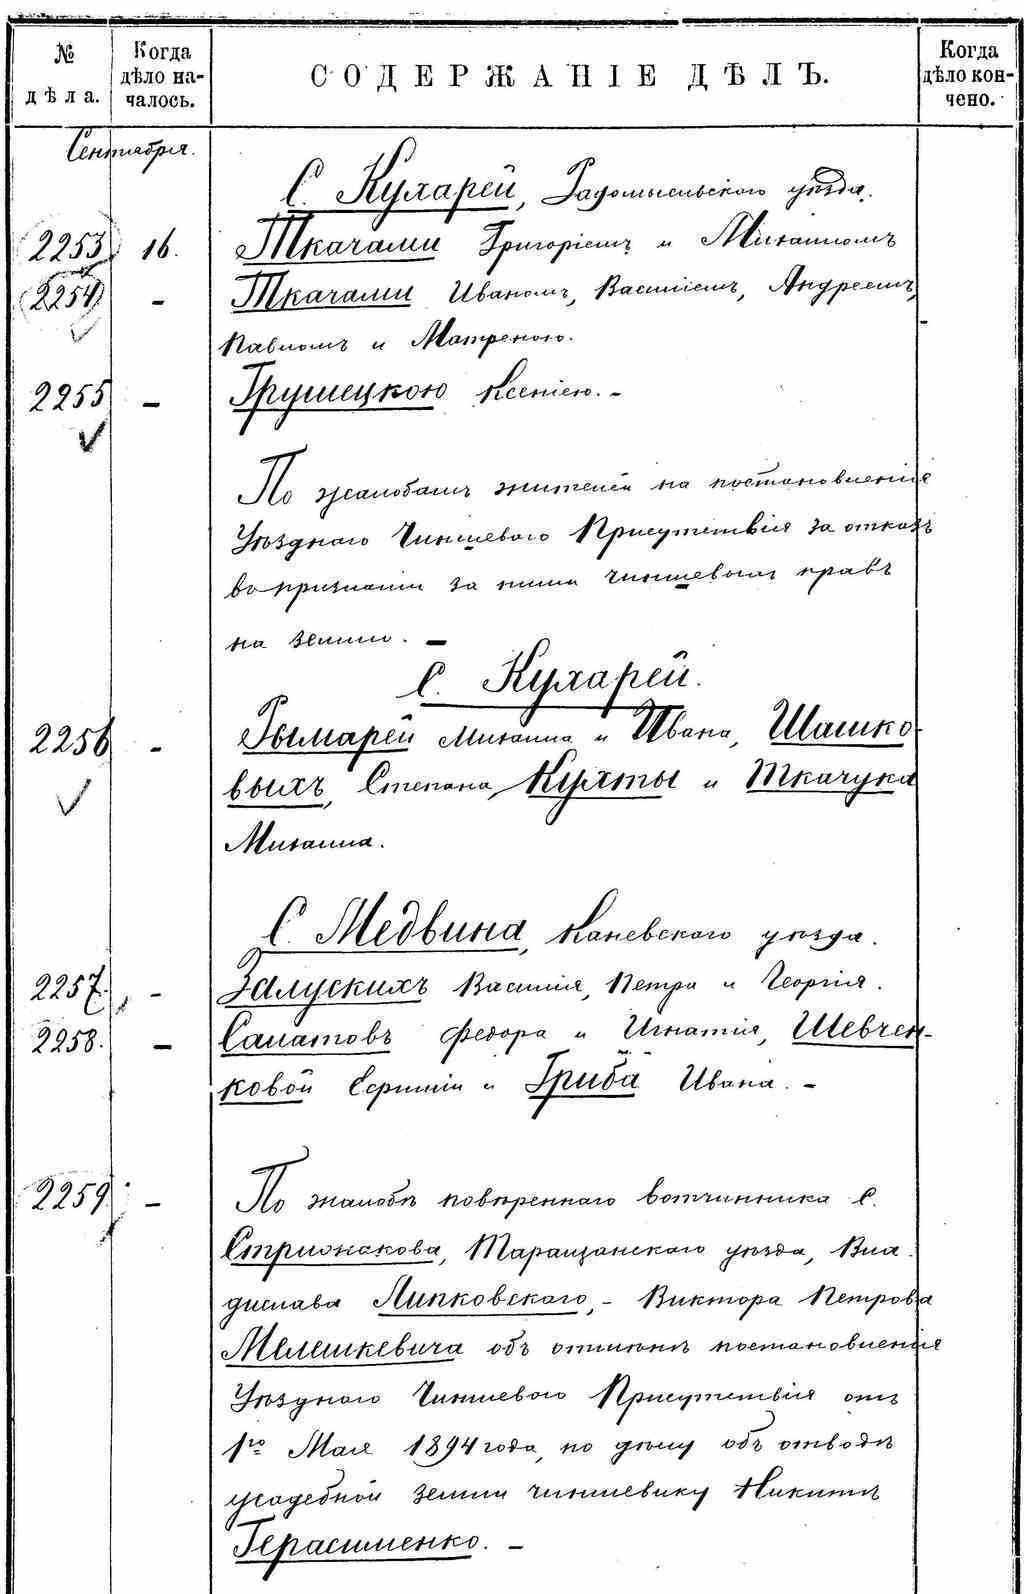 № дѣла.
Когда дѣло началось.
СОДЕРЖАНІЕ ДѢЛЪ.
Когда дѣло кончено.
Сентября.
С. Кухарей, Радомысльского уѣзда.
2253 16. Ткачами Григоріемъ и Михаиломъ
2254 - Ткачами Иваномъ, Василіемъ, Андреемъ,
Павломъ и Матреною.
2255 - Грушецкою Ксеніею. -
По жалобамъ жителей на постановленія
Уѣзднаго Чиншеваго Присутствія за отказъ
въ признаніи за ними чиншевыхъ правъ
на землю. -
С. Кухарей.
2256 - Рымарей Михаила и Ивана, Шашко-
выхъ, Степана, Кухты и Ткачука
Михаила.
С. Медвина, Каневского уѣзда.
2257. - Залускихъ Василія, Петра и Георгія.
2258. - Салатовъ Федора и Игнатія, Шевчен-
ковой и Гриба Ивана. -
2259 - По жалобѣ повѣреннаго вотчинника С.
Стрижакова, Таращанского уѣзда, Вла-
дислава Липковского, - Виктора Петрова
Мелешкевича объ отмѣнѣ постановленія
Уѣзднаго Чиншевого Присутствія отъ
1го Мая 1894 года, по дѣлу объ отводѣ
усадебной земли чиншевику Никитѣ
Герасименко. -